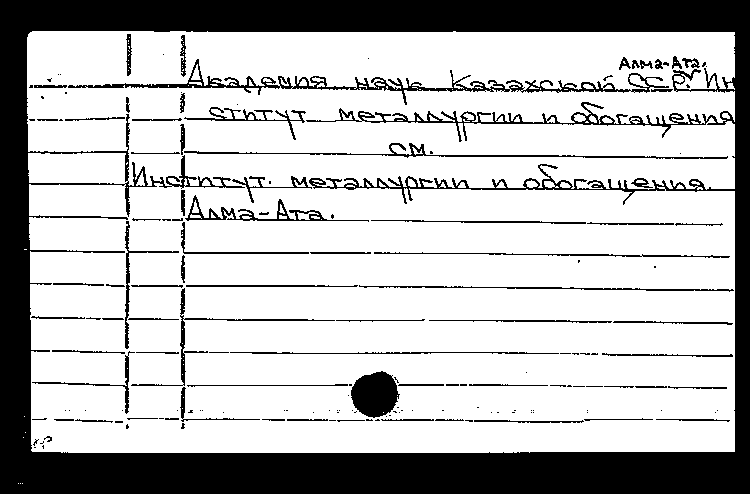 Алма-Ата.
Академия наук Казахской ССР. Ин
ститут металлургии и обогащения
см.
Институт. металлургии и обогащения.
Алма-Ата.